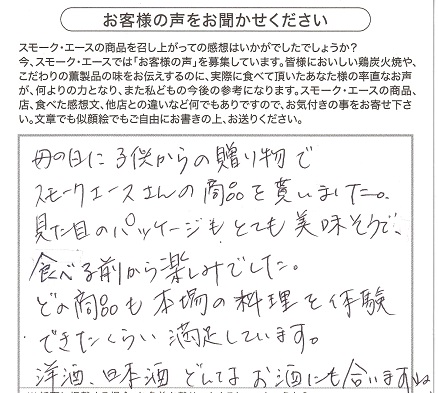 お客様の声をお聞かせください
スモーク・エースの商品を召し上がっての感想はいかがでしたでしょうか？
今、スモーク・エースでは「お客様の声」を募集しています。皆様においしい鶏炭火焼や、
こだわりの薫製品の味をお伝えするのに、実際に食べて頂いたあなた様の率直なお声
が、何よりの力となり、また私どもの今後の参考になります。スモーク・エースの商品、
店、食べた感想文、他店との違いなど何でもありですので、お気付きの事をお寄せ下さ
い。文章でも似顔絵でもご自由にお書きの上、お送りください。
母の日に子供からの贈り物で
スモークエースさんの商品を貰いました。
見た目のパッケージもとても美味そうで、
食べる前から楽しみでした。
どの商品も本場の料理を体験
できたくらい満足しています。
洋酒、日本酒どんなお酒にも合いますね